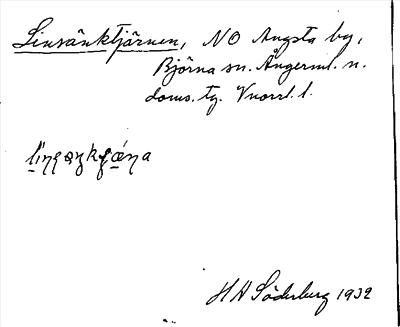 Linsänktjärnen, NO Ångsta by,
Björna sn. Ångerml. n.
doms. tg. Vnorrl. l.
H A Söderberg 1932